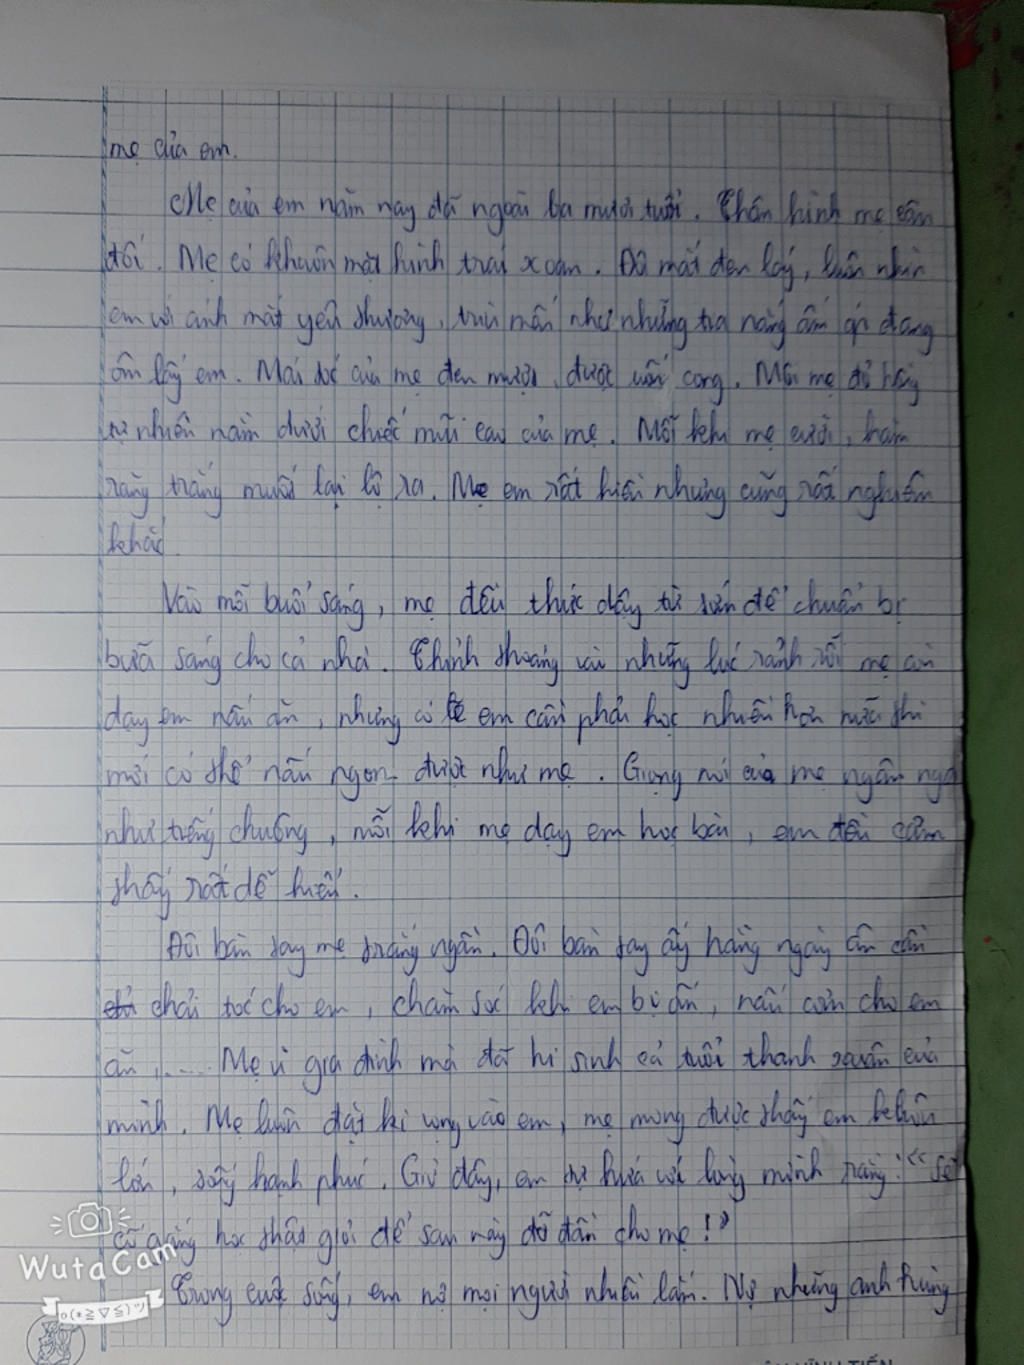 mẹ của em.
Mẹ của em năm nay đã ngoài ba mươi tuổi. Thân hình mẹ cân
đối. Mẹ có khuôn mặt hình trái xoan. Đôi mắt đen láy, luôn nhìn
em với ánh mắt yêu thương, trìu mến như những tia nắng ấm áp đang
ôm lấy em. Mái tóc của mẹ đen mượt, được uốn cong. Môi mẹ đỏ hồng
tự nhiên nằm dưới chiếc mũi cao của mẹ. Mỗi khi mẹ cười, hàm
răng trắng muốt lại lộ ra. Mẹ em rất hiền nhưng cũng rất nghiêm
khắc.
Vào mỗi buổi sáng, mẹ đều thức dậy từ sớm để chuẩn bị
bữa sáng cho cả nhà. Thỉnh thoảng vào những lúc rảnh rỗi mẹ còn
dạy em nấu ăn, nhưng có lẽ em cần phải học nhiều hơn nữa thì
mới có thể nấu ngon được như mẹ. Giọng nói của mẹ ngân nga
như tiếng chuông, mỗi khi mẹ dạy em học bài, em đều cảm
thấy rất dễ hiểu.
Đôi bàn tay mẹ trắng ngần. Đôi bàn tay ấy hằng ngày ân cần
chải tóc cho em, chăm sóc khi em bị ốm, nấu cơm cho em
ăn,..... Mẹ vì gia đình mà đã hi sinh cả tuổi thanh xuân của
mình. Mẹ luôn đặt kì vọng vào em, mẹ mong được thấy em khôn
lớn, sống hạnh phúc. Giờ đây, em tự hứa với lòng mình rằng: "Sẽ
cố gắng học thật giỏi để sau này đỡ đần cho mẹ!"
Trong cuộc sống, em nợ mọi người nhiều lắm. Nợ những anh hùng
WutaCam
VĨNH TIẾN